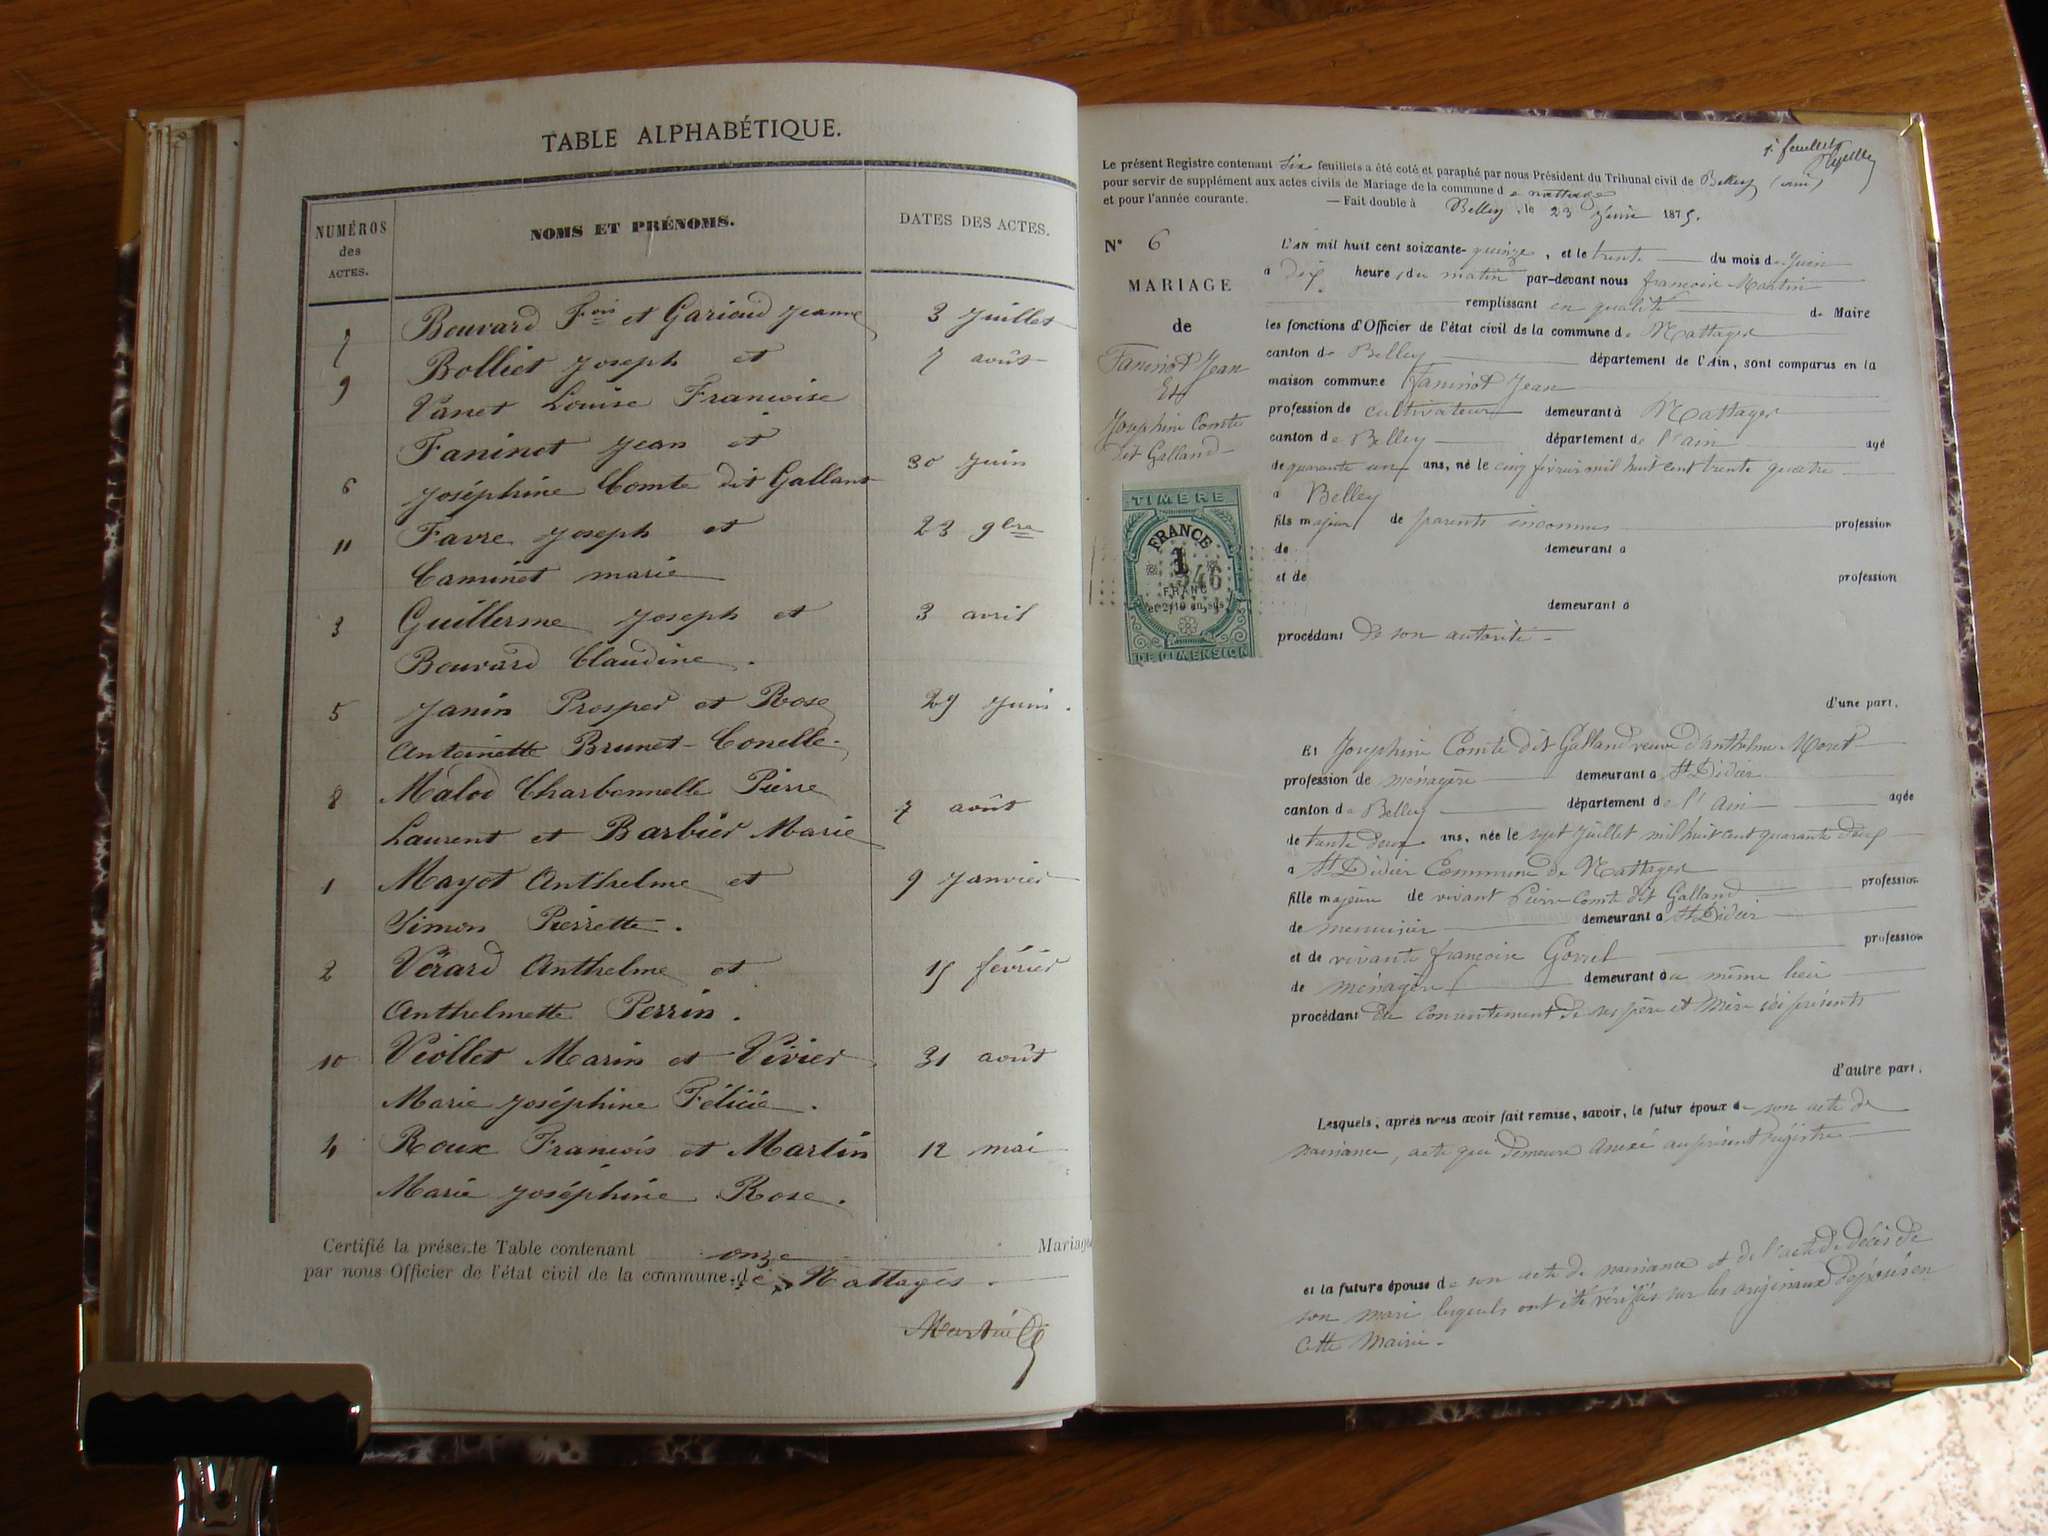 TABLE ALPHABÉTIQUE.
NUMÉROS des ACTES.
NOMS ET PRÉNOMS.
DATES DES ACTES.
7 Bouvard Fois et Gariod Jeanne 3 Juillet
Bolliet Joseph et 7 août
9 Vanet Louise Francoise
Faninot Jean et
6 Joséphine Comte dit Galland 30 Juin
Favre Joseph et 23 9bre
11 Caminet marie
3 Guillerme Joseph et 3 avril
Bouvard Claudine.
5 Janin Prosper et Rose 29 Juin.
Antoinette Brunet-Conelle.
8 Malod Charbonnelle Pierre
Laurent et Barbier Marie 7 août
1 Mayot Anthelme et 9 Janvier
Simon Pierrette.
2 Vérard Anthelme et 15 février
Anthelmette Perrin.
10 Viollet Marin et Vivier 31 août
Marie Joséphine Félicie.
4 Roux Francois et Martin 12 mai
Marie Joséphine Rose.
Certifié la présente Table contenant onze Mariage
par nous Officier de l'état civil de la commune de Nattages.
Martin
1r feuillet
Le présent Registre contenant six feuillets a été coté et paraphé par nous Président du Tribunal civil de Belley (ain)
pour servir de supplément aux actes civils de Mariage de la commune de nattage
et pour l'année courante. — Fait double à Belley, le 23 Juin 1875.
N° 6
MARIAGE
de
Faninot Jean
Et
Josephine Comte
dit Galland
TIMBRE
FRANCE
1
346
FRANC
et 2/10 en sus
DE DIMENSION
L'an mil huit cent soixante-quinze, et le trente du mois de Juin
à dix heures du matin par-devant nous francois Martin
remplissant en qualité de Maire
les fonctions d'Officier de l'état civil de la commune de Nattages
canton de Belley département de l'Ain, sont comparus en la
maison commune Faninot Jean
profession de cultivateur demeurant à Nattages
canton de Belley département de l'ain agé
de quarante un ans, né le cinq fevrier mil huit cent trente quatre
a Belley
fils majeur de parents inconnus profession
de demeurant a
et de profession
demeurant a
procédant de son autorité
d'une part.
Et Josephine Comte dit Galland veuve d'anthelme Moret
profession de ménagère demeurant a St Didier
canton de Belley département de l'ain agée
de trente deux ans, née le sept Juillet mil huit cent quarante deux
a St Didier Commune de Nattages
fille majeure de vivant Pierre Comte dit Galland profession
de menuisier demeurant a St Didier
et de vivante francoise Govret profession
de ménagère demeurant au même lieu
procédant du consentement de ses père et Mère ici présents
d'autre part.
Lesquels, après nous avoir fait remise, savoir, le futur époux de son acte de
naissance, acte qui demeure annexé au présent registre
et la future épouse de son acte de naissance et de l'acte de décès de
son mari lesquels ont été vérifiés sur les originaux déposés en
cette Mairie.